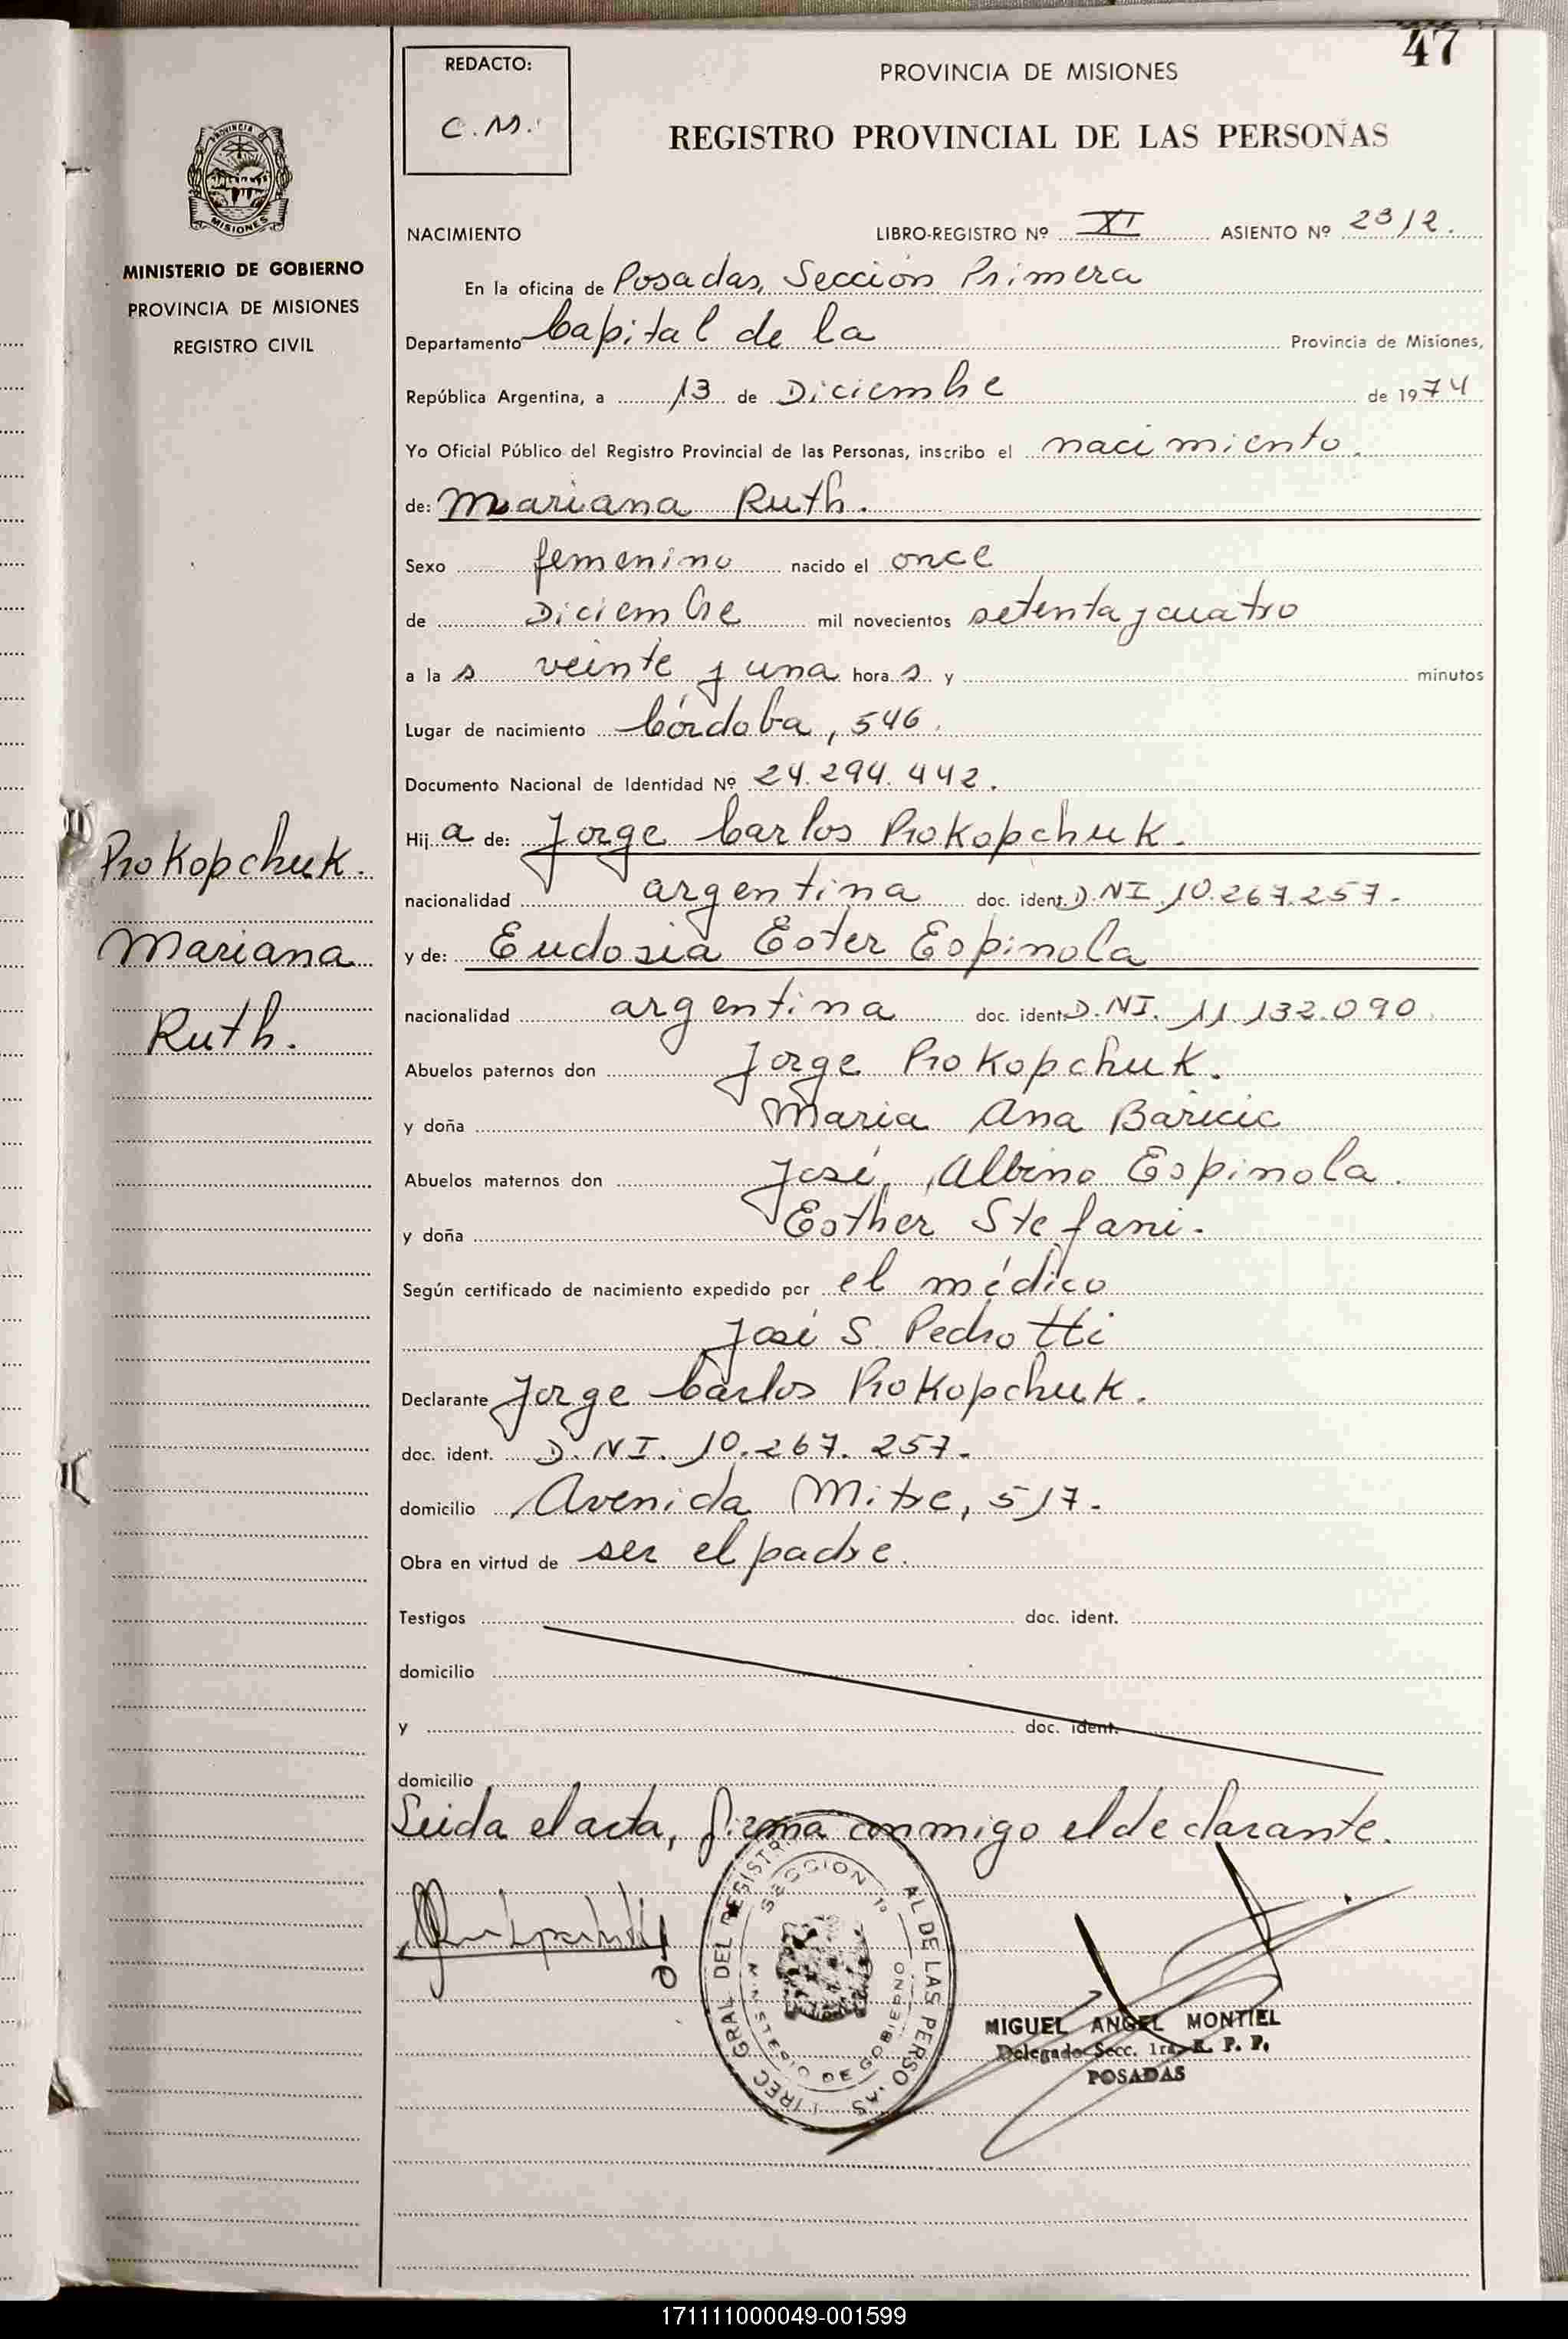 47
REDACTO:
C. M.
PROVINCIA DE MISIONES
REGISTRO PROVINCIAL DE LAS PERSONAS
PROVINCIA DE
MISIONES
MINISTERIO DE GOBIERNO
PROVINCIA DE MISIONES
REGISTRO CIVIL
Prokopchuk.
Mariana
Ruth.
NACIMIENTO LIBRO-REGISTRO Nº XI ASIENTO Nº 2312.
En la oficina de Posadas, Sección Primera
Departamento Capital de la Provincia de Misiones,
República Argentina, a 13 de Diciembre de 1974
Yo Oficial Público del Registro Provincial de las Personas, inscribo el nacimiento.
de: Mariana Ruth.
Sexo femenino nacido el once
de Diciembre mil novecientos setenta y cuatro
a la s veinte y una hora s y minutos
Lugar de nacimiento Córdoba, 546.
Documento Nacional de Identidad Nº 24.294.442.
Hij a de: Jorge Carlos Prokopchuk.
nacionalidad argentina doc. ident. D.NI. 10.267.257.-
y de: Eudosia Ester Espinola
nacionalidad argentina doc. ident. D.NI. 11.132.090
Abuelos paternos don Jorge Prokopchuk.
y doña Maria Ana Baricic
Abuelos maternos don José Albino Espinola.
y doña Esther Stefani.
Según certificado de nacimiento expedido por el médico
José S. Pedrotti
Declarante Jorge Carlos Prokopchuk.
doc. ident. D. NI. 10.267.257.-
domicilio Avenida Mitre, 517.-
Obra en virtud de ser el padre.
Testigos doc. ident.
domicilio
y doc. ident.
domicilio
Leida el acta, firma conmigo el declarante.
SECCION 1º
MINISTERIO DE GOBIERNO
MIGUEL ANGEL MONTIEL
Delegado Secc. 1ra. R. P. P.
POSADAS
171111000049-001599